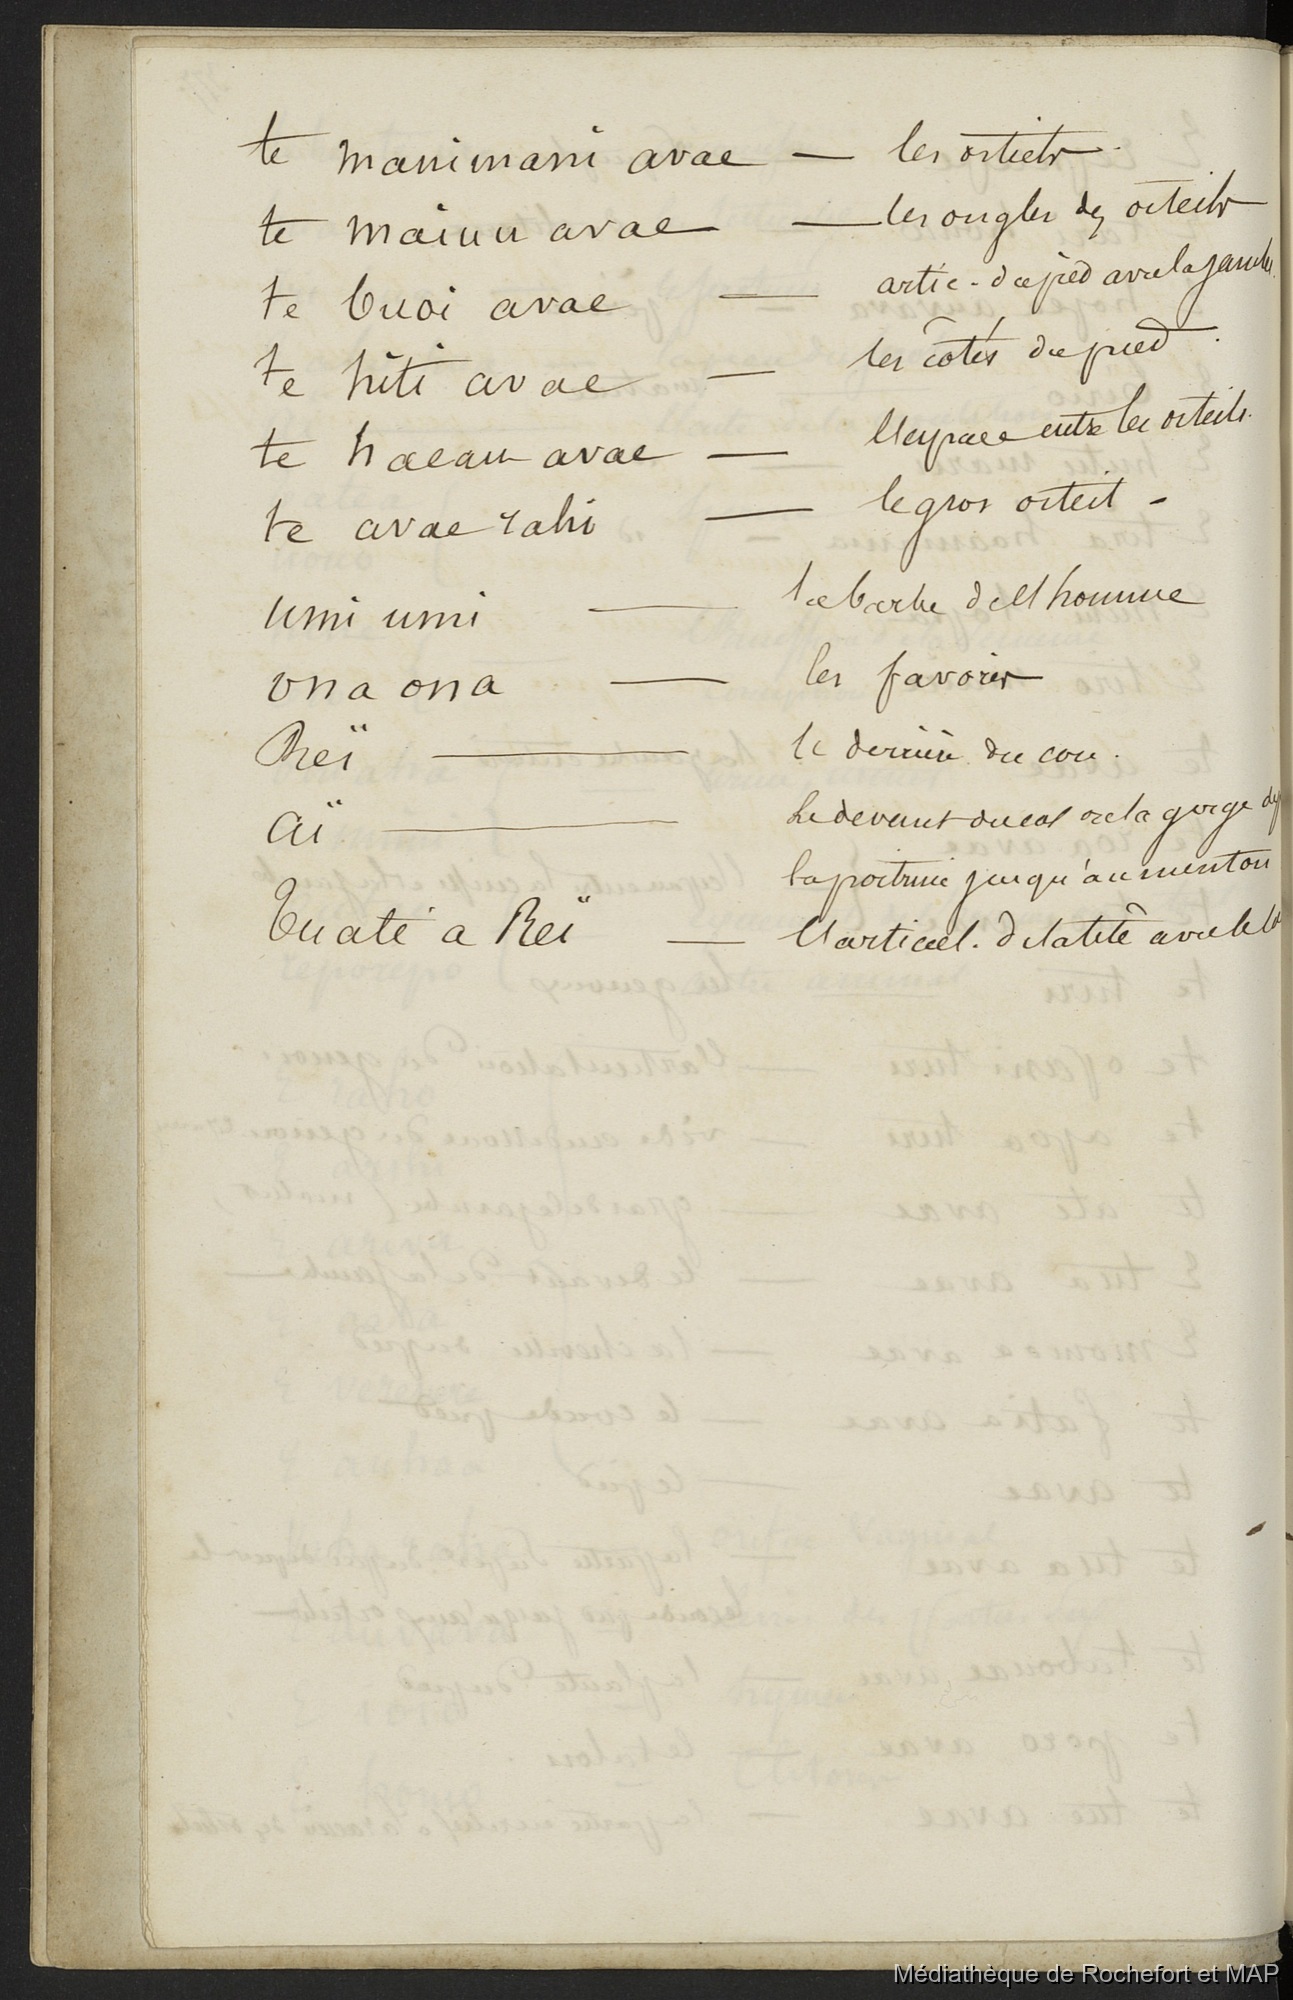 te manimani avae — les orteils.
te maiuu avae — les ongles des orteils
te buoi avae — artic. du pied avec la jambe
te hiti avae — les côtés du pied.
te haeau avae — l'espace entre les orteils.
te avae rahi — le gros orteil -
umi umi — la barbe de l'homme
ona ona — les favoris
Reï — le derrière du cou.
aï — Le devant du col ou la gorge dep
la poitrine jusqu'au menton
Tuati a Reï — l'articul. de la tête avec le
Médiathèque de Rochefort et MAP